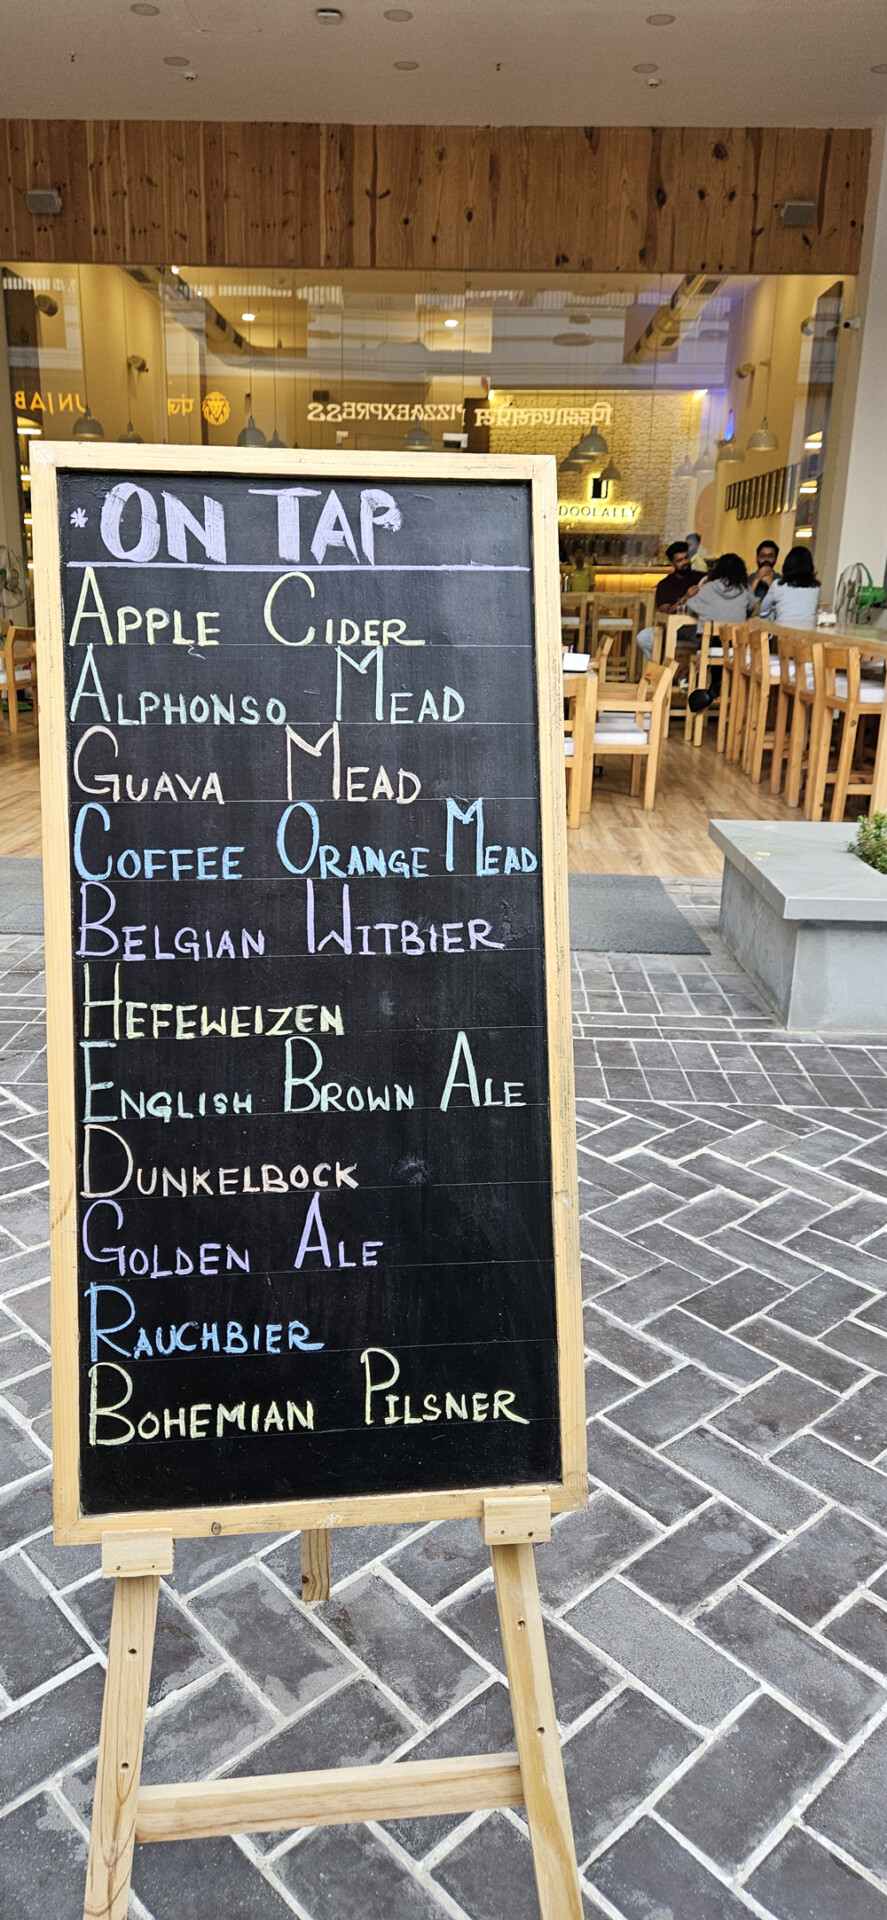 UNJAB
पंज
PIZZAEXPRESS
पिज़्ज़ाएक्सप्रेस
DOOLALLY
*ON TAP
APPLE CIDER
ALPHONSO MEAD
GUAVA MEAD
COFFEE ORANGE MEAD
BELGIAN WITBIER
HEFEWEIZEN
ENGLISH BROWN ALE
DUNKELBOCK
GOLDEN ALE
RAUCHBIER
BOHEMIAN PILSNER